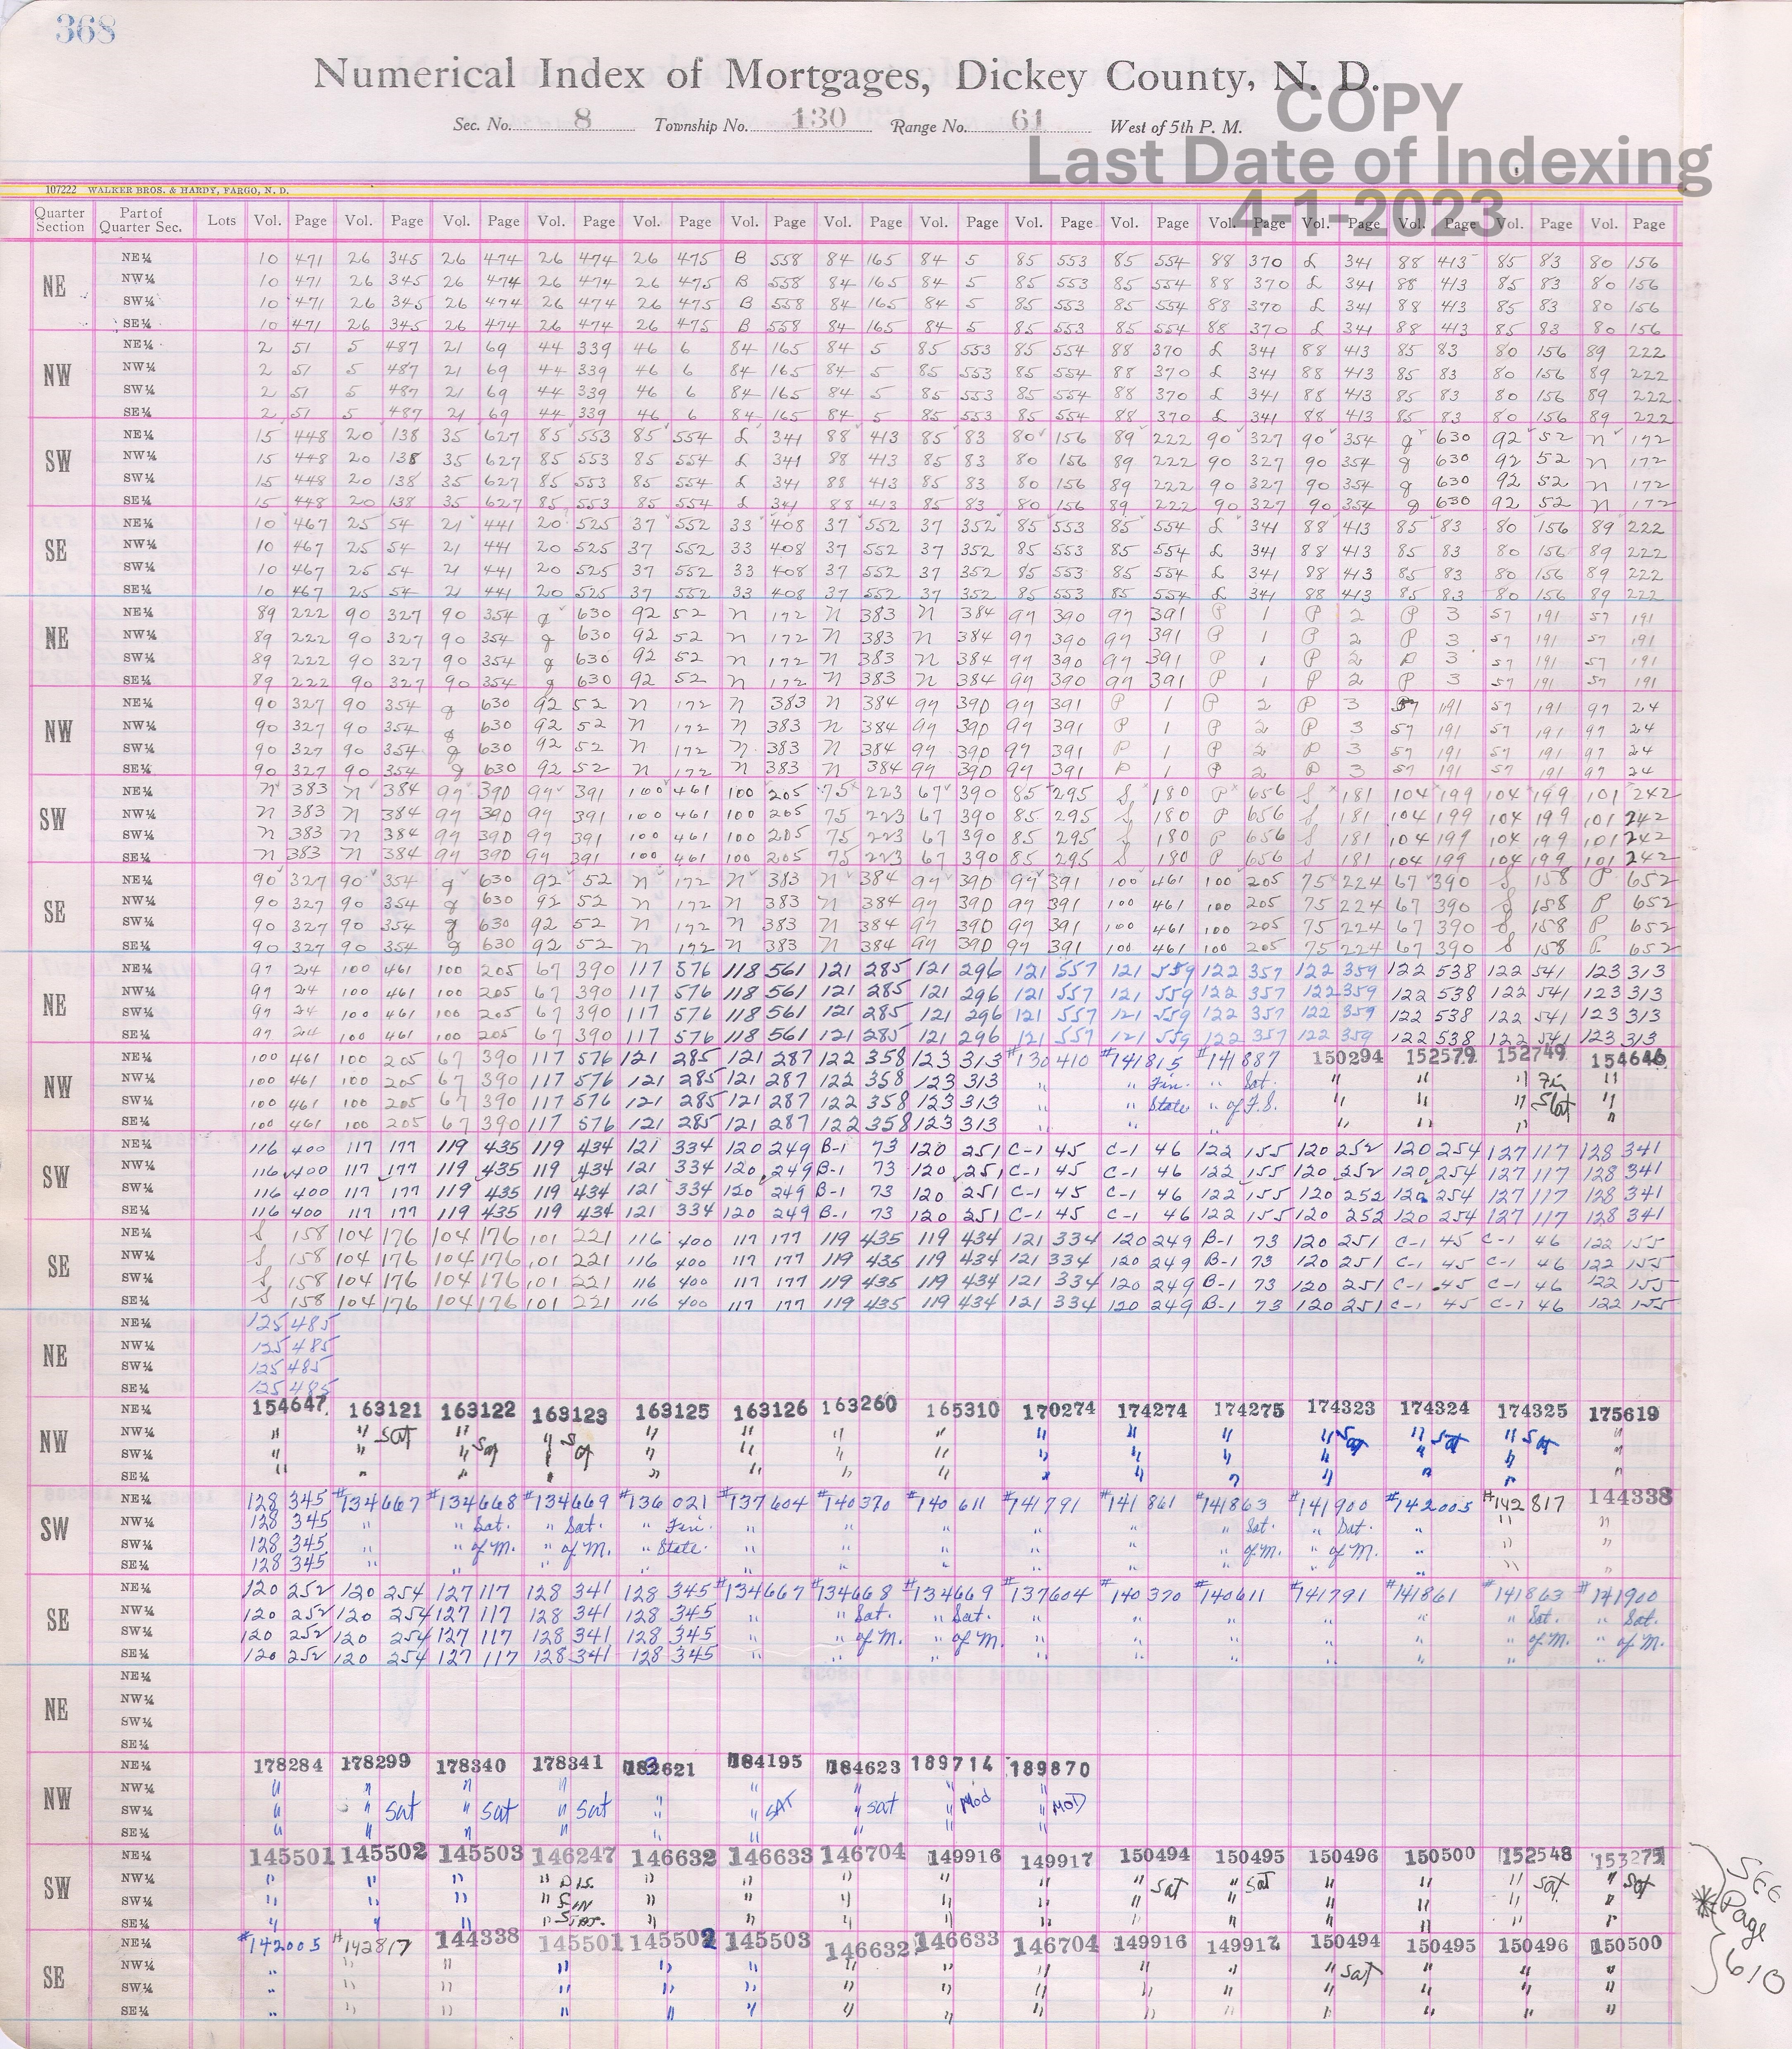 368
Numerical Index of Mortgages, Dickey County, N. D.
Sec. No. 8 Township No. 130 Range No. 61 West of 5th P. M.
COPY
Last Date of Indexing
4-1-2023
107222 WALKER BROS. & HARDY, FARGO, N. D.
Quarter Section Part of Quarter Sec. Lots Vol. Page Vol. Page Vol. Page Vol. Page Vol. Page Vol. Page Vol. Page Vol. Page Vol. Page Vol. Page Vol. Page Vol. Page Vol. Page Vol. Page Vol. Page
NE
NE¼ 10 471 26 345 26 474 26 474 26 475 B 558 84 165 84 5 85 553 85 554 88 370 L 341 88 413 85 83 80 156
NW¼ 10 471 26 345 26 474 26 474 26 475 B 558 84 165 84 5 85 553 85 554 88 370 L 341 88 413 85 83 80 156
SW¼ 10 471 26 345 26 474 26 474 26 475 B 558 84 165 84 5 85 553 85 554 88 370 L 341 88 413 85 83 80 156
SE¼ 10 471 26 345 26 474 26 474 26 475 B 558 84 165 84 5 85 553 85 554 88 370 L 341 88 413 85 83 80 156
NW
NE¼ 2 51 5 487 21 69 44 339 46 6 84 165 84 5 85 553 85 554 88 370 L 341 88 413 85 83 80 156 89 222
NW¼ 2 51 5 487 21 69 44 339 46 6 84 165 84 5 85 553 85 554 88 370 L 341 88 413 85 83 80 156 89 222
SW¼ 2 51 5 487 21 69 44 339 46 6 84 165 84 5 85 553 85 554 88 370 L 341 88 413 85 83 80 156 89 222
SE¼ 2 51 5 487 21 69 44 339 46 6 84 165 84 5 85 553 85 554 88 370 L 341 88 413 85 83 80 156 89 222
SW
NE¼ 15 448 20 138 35 627 85 553 85 554 L 341 88 413 85 83 80 156 89 222 90 327 90 354 g 630 92 52 n 172
NW¼ 15 448 20 138 35 627 85 553 85 554 L 341 88 413 85 83 80 156 89 222 90 327 90 354 g 630 92 52 n 172
SW¼ 15 448 20 138 35 627 85 553 85 554 L 341 88 413 85 83 80 156 89 222 90 327 90 354 g 630 92 52 n 172
SE¼ 15 448 20 138 35 627 85 553 85 554 L 341 88 413 85 83 80 156 89 222 90 327 90 354 g 630 92 52 n 172
SE
NE¼ 10 467 25 54 21 441 20 525 37 552 33 408 37 552 37 352 85 553 85 554 L 341 88 413 85 83 80 156 89 222
NW¼ 10 467 25 54 21 441 20 525 37 552 33 408 37 552 37 352 85 553 85 554 L 341 88 413 85 83 80 156 89 222
SW¼ 10 467 25 54 21 441 20 525 37 552 33 408 37 552 37 352 85 553 85 554 L 341 88 413 85 83 80 156 89 222
SE¼ 10 467 25 54 21 441 20 525 37 552 33 408 37 552 37 352 85 553 85 554 L 341 88 413 85 83 80 156 89 222
NE
NE¼ 89 222 90 327 90 354 g 630 92 52 n 172 n 383 n 384 97 390 97 391 P 1 P 2 P 3 57 191 57 191
NW¼ 89 222 90 327 90 354 g 630 92 52 n 172 n 383 n 384 97 390 97 391 P 1 P 2 P 3 57 191 57 191
SW¼ 89 222 90 327 90 354 g 630 92 52 n 172 n 383 n 384 97 390 97 391 P 1 P 2 P 3 57 191 57 191
SE¼ 89 222 90 327 90 354 g 630 92 52 n 172 n 383 n 384 97 390 97 391 P 1 P 2 P 3 57 191 57 191
NW
NE¼ 90 327 90 354 g 630 92 52 n 172 n 383 n 384 97 390 97 391 P 1 P 2 P 3 57 191 57 191 97 24
NW¼ 90 327 90 354 g 630 92 52 n 172 n 383 n 384 97 390 97 391 P 1 P 2 P 3 57 191 57 191 97 24
SW¼ 90 327 90 354 g 630 92 52 n 172 n 383 n 384 97 390 97 391 P 1 P 2 P 3 57 191 57 191 97 24
SE¼ 90 327 90 354 g 630 92 52 n 172 n 383 n 384 97 390 97 391 P 1 P 2 P 3 57 191 57 191 97 24
SW
NE¼ n 383 n 384 97 390 97 391 100 461 100 205 75 223 67 390 85 295 S 180 P 656 S 181 104 199 104 199 101 242
NW¼ n 383 n 384 97 390 97 391 100 461 100 205 75 223 67 390 85 295 S 180 P 656 S 181 104 199 104 199 101 242
SW¼ n 383 n 384 97 390 97 391 100 461 100 205 75 223 67 390 85 295 S 180 P 656 S 181 104 199 104 199 101 242
SE¼ n 383 n 384 97 390 97 391 100 461 100 205 75 223 67 390 85 295 S 180 P 656 S 181 104 199 104 199 101 242
SE
NE¼ 90 327 90 354 g 630 92 52 n 172 n 383 n 384 97 390 97 391 100 461 100 205 75 224 67 390 S 158 P 652
NW¼ 90 327 90 354 g 630 92 52 n 172 n 383 n 384 97 390 97 391 100 461 100 205 75 224 67 390 S 158 P 652
SW¼ 90 327 90 354 g 630 92 52 n 172 n 383 n 384 97 390 97 391 100 461 100 205 75 224 67 390 S 158 P 652
SE¼ 90 327 90 354 g 630 92 52 n 172 n 383 n 384 97 390 97 391 100 461 100 205 75 224 67 390 S 158 P 652
NE
NE¼ 97 24 100 461 100 205 67 390 117 576 118 561 121 285 121 296 121 557 121 559 122 357 122 359 122 538 122 541 123 313
NW¼ 97 24 100 461 100 205 67 390 117 576 118 561 121 285 121 296 121 557 121 559 122 357 122 359 122 538 122 541 123 313
SW¼ 97 24 100 461 100 205 67 390 117 576 118 561 121 285 121 296 121 557 121 559 122 357 122 359 122 538 122 541 123 313
SE¼ 97 24 100 461 100 205 67 390 117 576 118 561 121 285 121 296 121 557 121 559 122 357 122 359 122 538 122 541 123 313
NW
NE¼ 100 461 100 205 67 390 117 576 121 285 121 287 122 358 123 313 #130410 #141815 #141887 150294 152579 152749 154646
NW¼ 100 461 100 205 67 390 117 576 121 285 121 287 122 358 123 313 " " Fin. " Sat. " " " Fin "
SW¼ 100 461 100 205 67 390 117 576 121 285 121 287 122 358 123 313 " " State " of F.S. " " " Stat "
SE¼ 100 461 100 205 67 390 117 576 121 285 121 287 122 358 123 313 " " " " " " "
SW
NE¼ 116 400 117 177 119 435 119 434 121 334 120 249 B-1 73 120 251 C-1 45 C-1 46 122 155 120 252 120 254 127 117 128 341
NW¼ 116 400 117 177 119 435 119 434 121 334 120 249 B-1 73 120 251 C-1 45 C-1 46 122 155 120 252 120 254 127 117 128 341
SW¼ 116 400 117 177 119 435 119 434 121 334 120 249 B-1 73 120 251 C-1 45 C-1 46 122 155 120 252 120 254 127 117 128 341
SE¼ 116 400 117 177 119 435 119 434 121 334 120 249 B-1 73 120 251 C-1 45 C-1 46 122 155 120 252 120 254 127 117 128 341
SE
NE¼ S 158 104 176 104 176 101 221 116 400 117 177 119 435 119 434 121 334 120 249 B-1 73 120 251 C-1 45 C-1 46 122 155
NW¼ S 158 104 176 104 176 101 221 116 400 117 177 119 435 119 434 121 334 120 249 B-1 73 120 251 C-1 45 C-1 46 122 155
SW¼ S 158 104 176 104 176 101 221 116 400 117 177 119 435 119 434 121 334 120 249 B-1 73 120 251 C-1 45 C-1 46 122 155
SE¼ S 158 104 176 104 176 101 221 116 400 117 177 119 435 119 434 121 334 120 249 B-1 73 120 251 C-1 45 C-1 46 122 155
NE
NE¼ 125 485
NW¼ 125 485
SW¼ 125 485
SE¼ 125 485
NW
NE¼ 154647 163121 163122 163123 163125 163126 163260 165310 170274 174274 174275 174323 174324 174325 175619
NW¼ " " Sat " " Sa " " " " " " " " Sat " Sat " Sat "
SW¼ " " " Sat " at " " " " " " " " " " "
SE¼ " " " " " " " " " " " " " " "
SW
NE¼ 128 345 #134667 #134668 #134669 #136021 #137604 #140370 #140611 #141791 #141861 #141863 #141900 #142005 #142817 144338
NW¼ 128 345 " " Sat. " Sat. " Fin. " " " " " " Sat. " Sat. " " "
SW¼ 128 345 " " of M. " of M. " State. " " " " " " of M. " of M. " " "
SE¼ 128 345 " " " " " " " " " " " " " "
SE
NE¼ 120 252 120 254 127 117 128 341 128 345 #134667 #134668 #134669 #137604 #140370 #140611 #141791 #141861 #141863 #141900
NW¼ 120 252 120 254 127 117 128 341 128 345 " " Sat. " Sat. " " " " " " Sat. " Sat.
SW¼ 120 252 120 254 127 117 128 341 128 345 " " of M. " of M. " " " " " " of M. " of M.
SE¼ 120 252 120 254 127 117 128 341 128 345 " " " " " " " " " "
NE
NE¼
NW¼
SW¼
SE¼
NW
NE¼ 178284 178299 178340 178341 182621 184195 184623 189714 189870
NW¼ " " " " " " " " "
SW¼ " " Sat " Sat " Sat " " SAT " Sat " Mod " MOD
SE¼ " " " " " " " " "
SW
NE¼ 145501 145502 145503 146247 146632 146633 146704 149916 149917 150494 150495 150496 150500 152548 153275
NW¼ " " " " Dis. " " " " " " Sat " Sat " " " Sat " Sat
SW¼ " " " " Fin " " " " " " " " " " "
SE¼ " " " " Stat. " " " " " " " " " " "
SE
NE¼ #142005 #142817 144338 145501 145502 145503 146632 146633 146704 149916 149917 150494 150495 150496 150500
NW¼ " " " " " " " " " " " " Sat " " "
SW¼ " " " " " " " " " " " " " " "
SE¼ " " " " " " " " " " " " " " "
* SEE Page 610